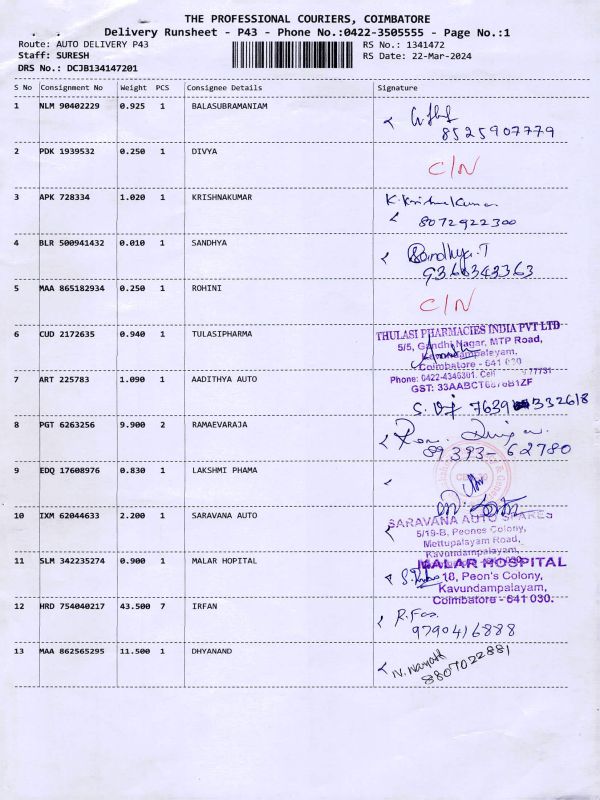 THE PROFESSIONAL COURIERS, COIMBATORE
Delivery Runsheet - P43 - Phone No.:0422-3505555 - Page No.:1
Route: AUTO DELIVERY P43 RS No.: 1341472
Staff: SURESH RS Date: 22-Mar-2024
DRS No.: DCJB134147201
S No Consignment No Weight PCS Consignee Details Signature
1 NLM 90402229 0.925 1 BALASUBRAMANIAM
8525907779
2 PDK 1939532 0.250 1 DIVYA C/N
3 APK 728334 1.020 1 KRISHNAKUMAR K. Krishnakumar
8072922300
4 BLR 500941432 0.010 1 SANDHYA Sandhya.T
9360343363
5 MAA 865182934 0.250 1 ROHINI C/N
6 CUD 2172635 0.940 1 TULASIPHARMA THULASI PHARMACIES INDIA PVT LTD
5/5, Gandhi Nagar, MTP Road,
Kavundampalayam,
Coimbatore - 641 030
7 ART 225783 1.090 1 AADITHYA AUTO Phone: 0422-4346301, Cell 77731
GST: 33AABCT6878B1ZF
7639 332618
8 PGT 6263256 9.900 2 RAMAEVARAJA
89393-62780
9 EDQ 17608976 0.830 1 LAKSHMI PHAMA
10 IXM 62044633 2.200 1 SARAVANA AUTO SARAVANA AUTO SPARES
5/19-B, Peones Colony,
Mettupalayam Road,
Kavundampalayam,
11 SLM 342235274 0.900 1 MALAR HOPITAL MALAR HOSPITAL
18, Peon's Colony,
Kavundampalayam,
Coimbatore - 641 030.
12 HRD 754040217 43.500 7 IRFAN
9790416888
13 MAA 862565295 11.500 1 DHYANAND
8807022881